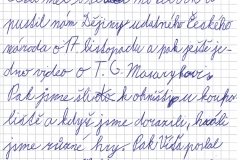 pustil nám Dějiny udatného českého
národa o 17. listopadu a pak ještě je-
dno video o T. G. Masarykovi.
Pak jsme šli k
liště a když jsme dorazili, hráli
jsme různé hry. Pak Víťa